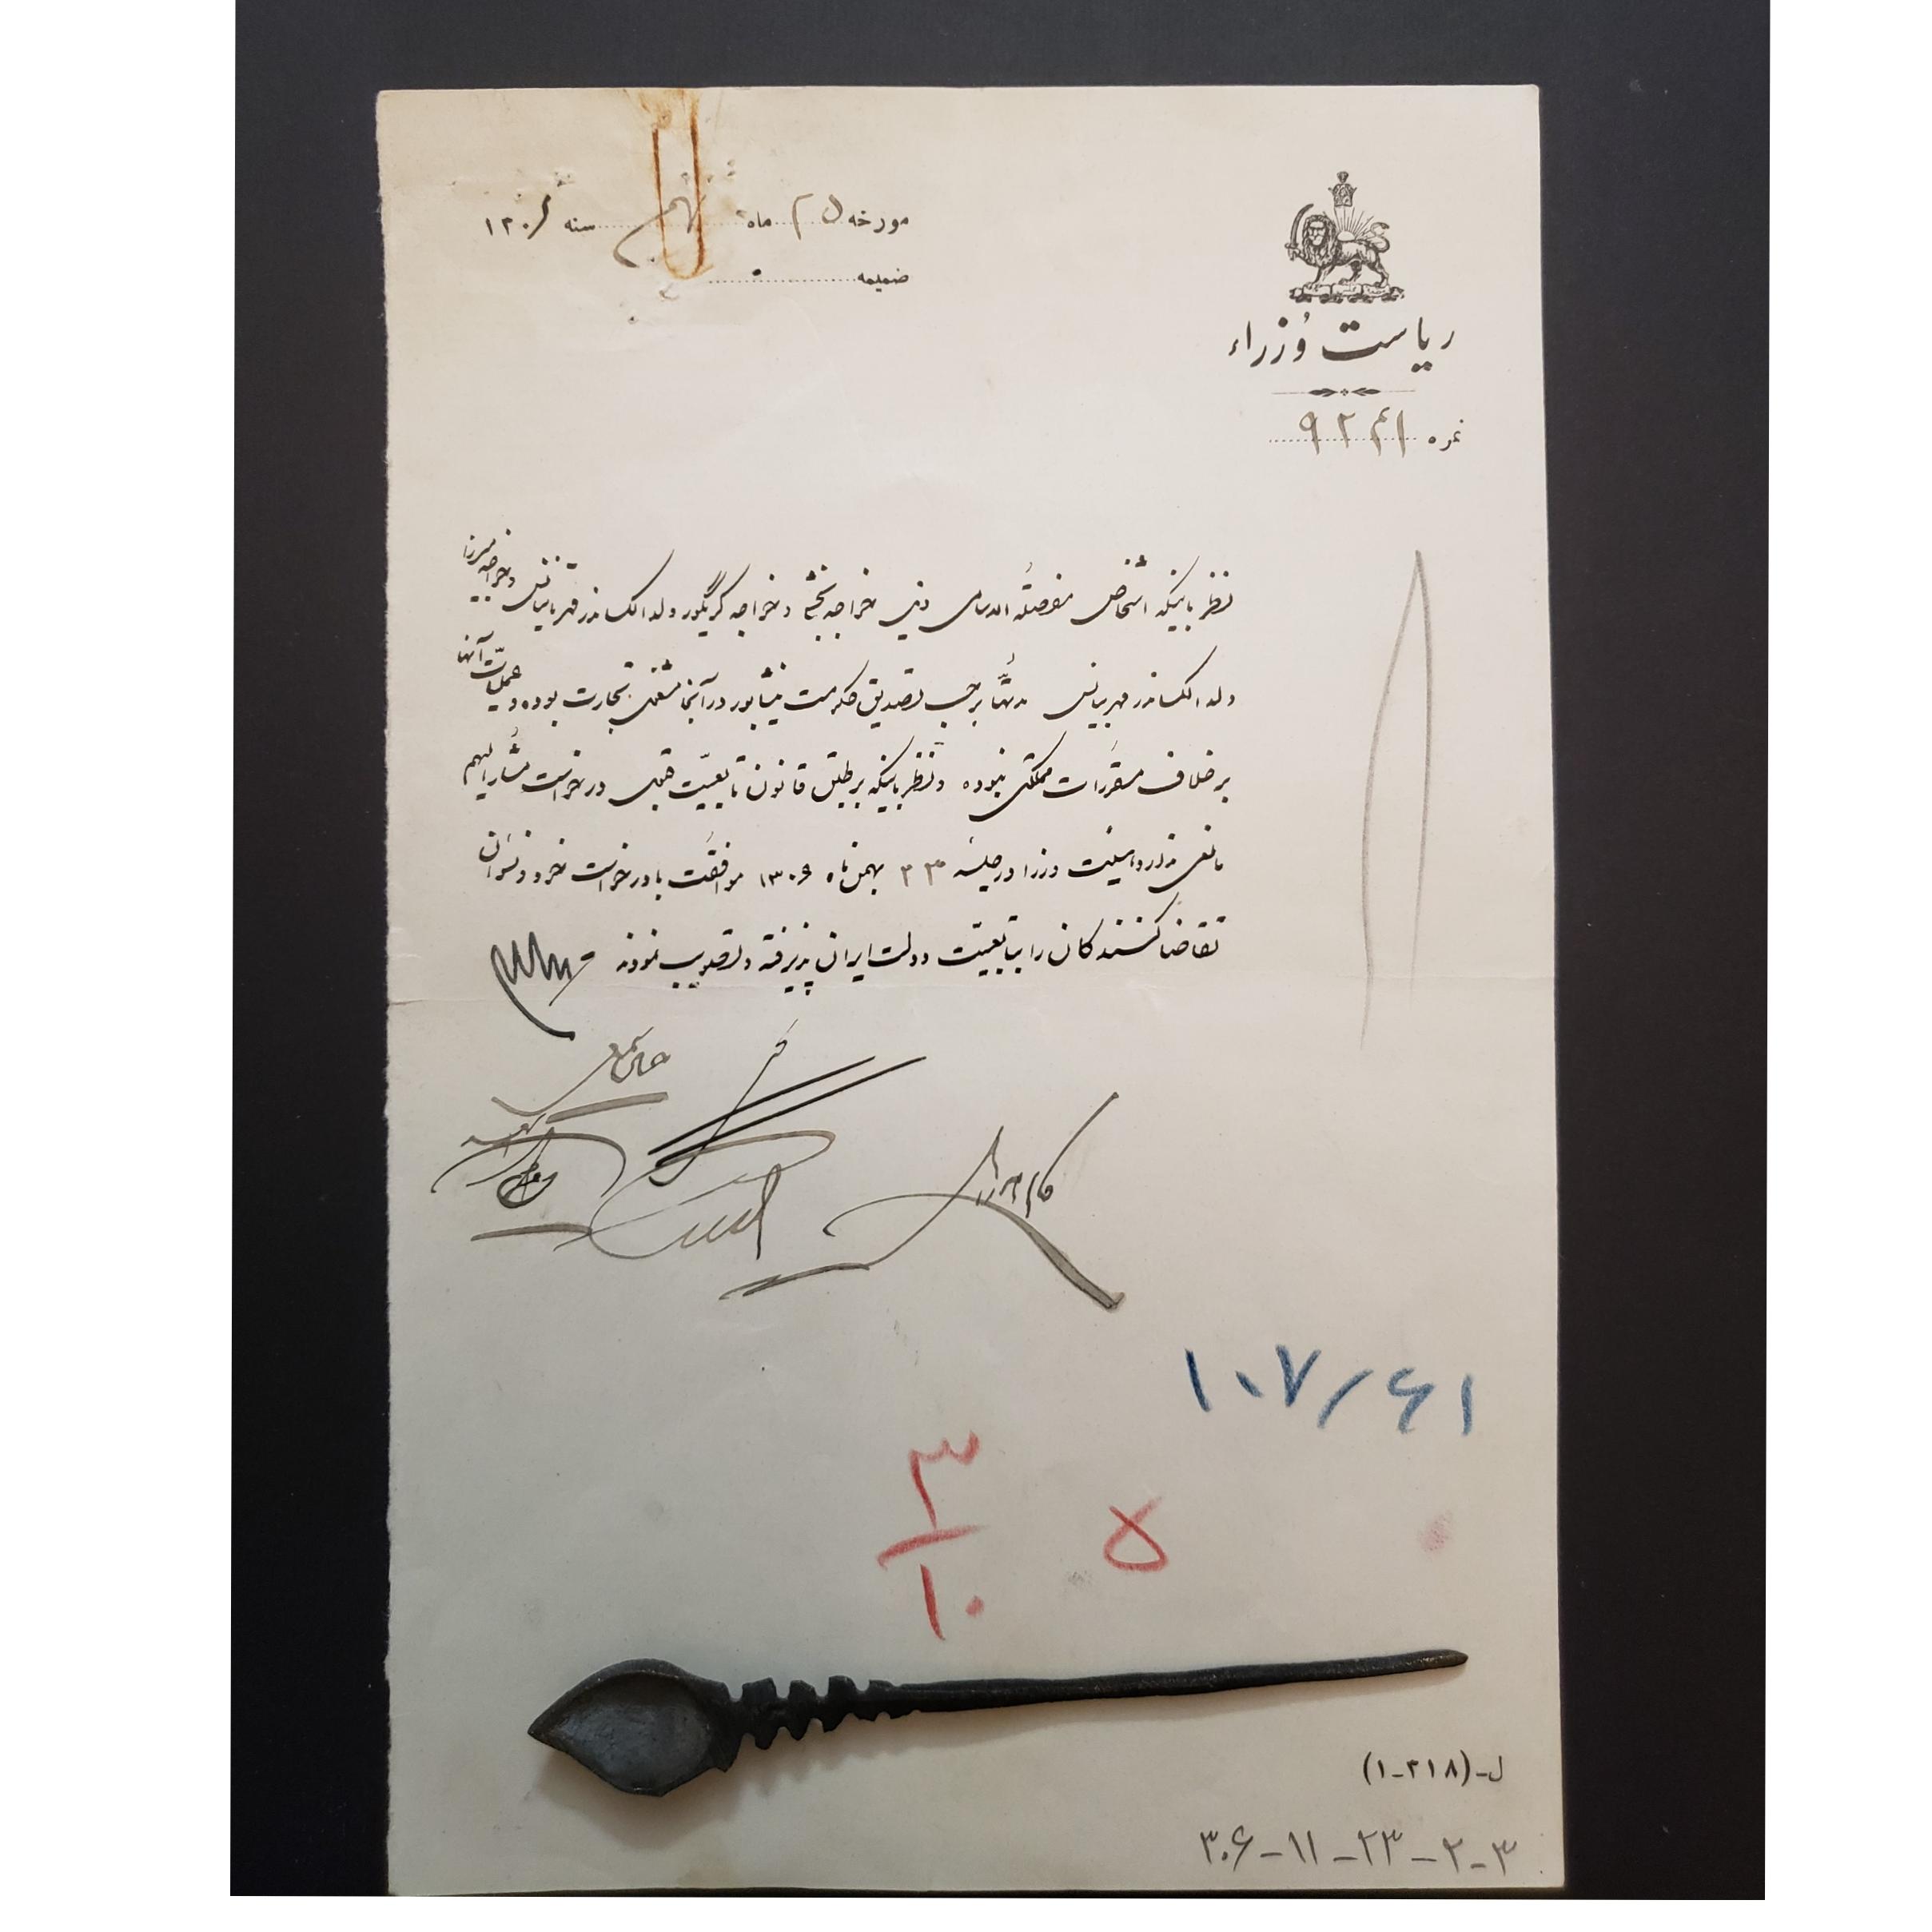 ریاست وزراء
نمره
مورخه ۲۵ ماه بهمن سنه ۱۳۰۶
ضمیمه
نظر باینکه اشخاص مفصلة الاسامی ذیل خواجه بخشی و خواجه گریگور ولد الکساندر قهرمانیانس و خواجه میرزا
ولد الکساندر مدتها بر حسب تصدیق حکومت نیشابور در آنجا مشغول تجارت بوده و عملیات آنها
بر خلاف مقررات مملکتی نبوده و نظر باینکه بر طبق قانون تابعیت قبول درخواست مشارالیهم
مانعی ندارد هیئت وزراء در جلسه ۲۳ بهمن ماه ۱۳۰۶ موافقت با درخواست نموده
تقاضا کنندگان را بتابعیت دولت ایران پذیرفته و تصویب نمودند
۱۰۷/۶۱
۳
۱۰
۵
ل-(۲۱۸-۱)
۳۰۶-۱۱-۲۳-۲-۳